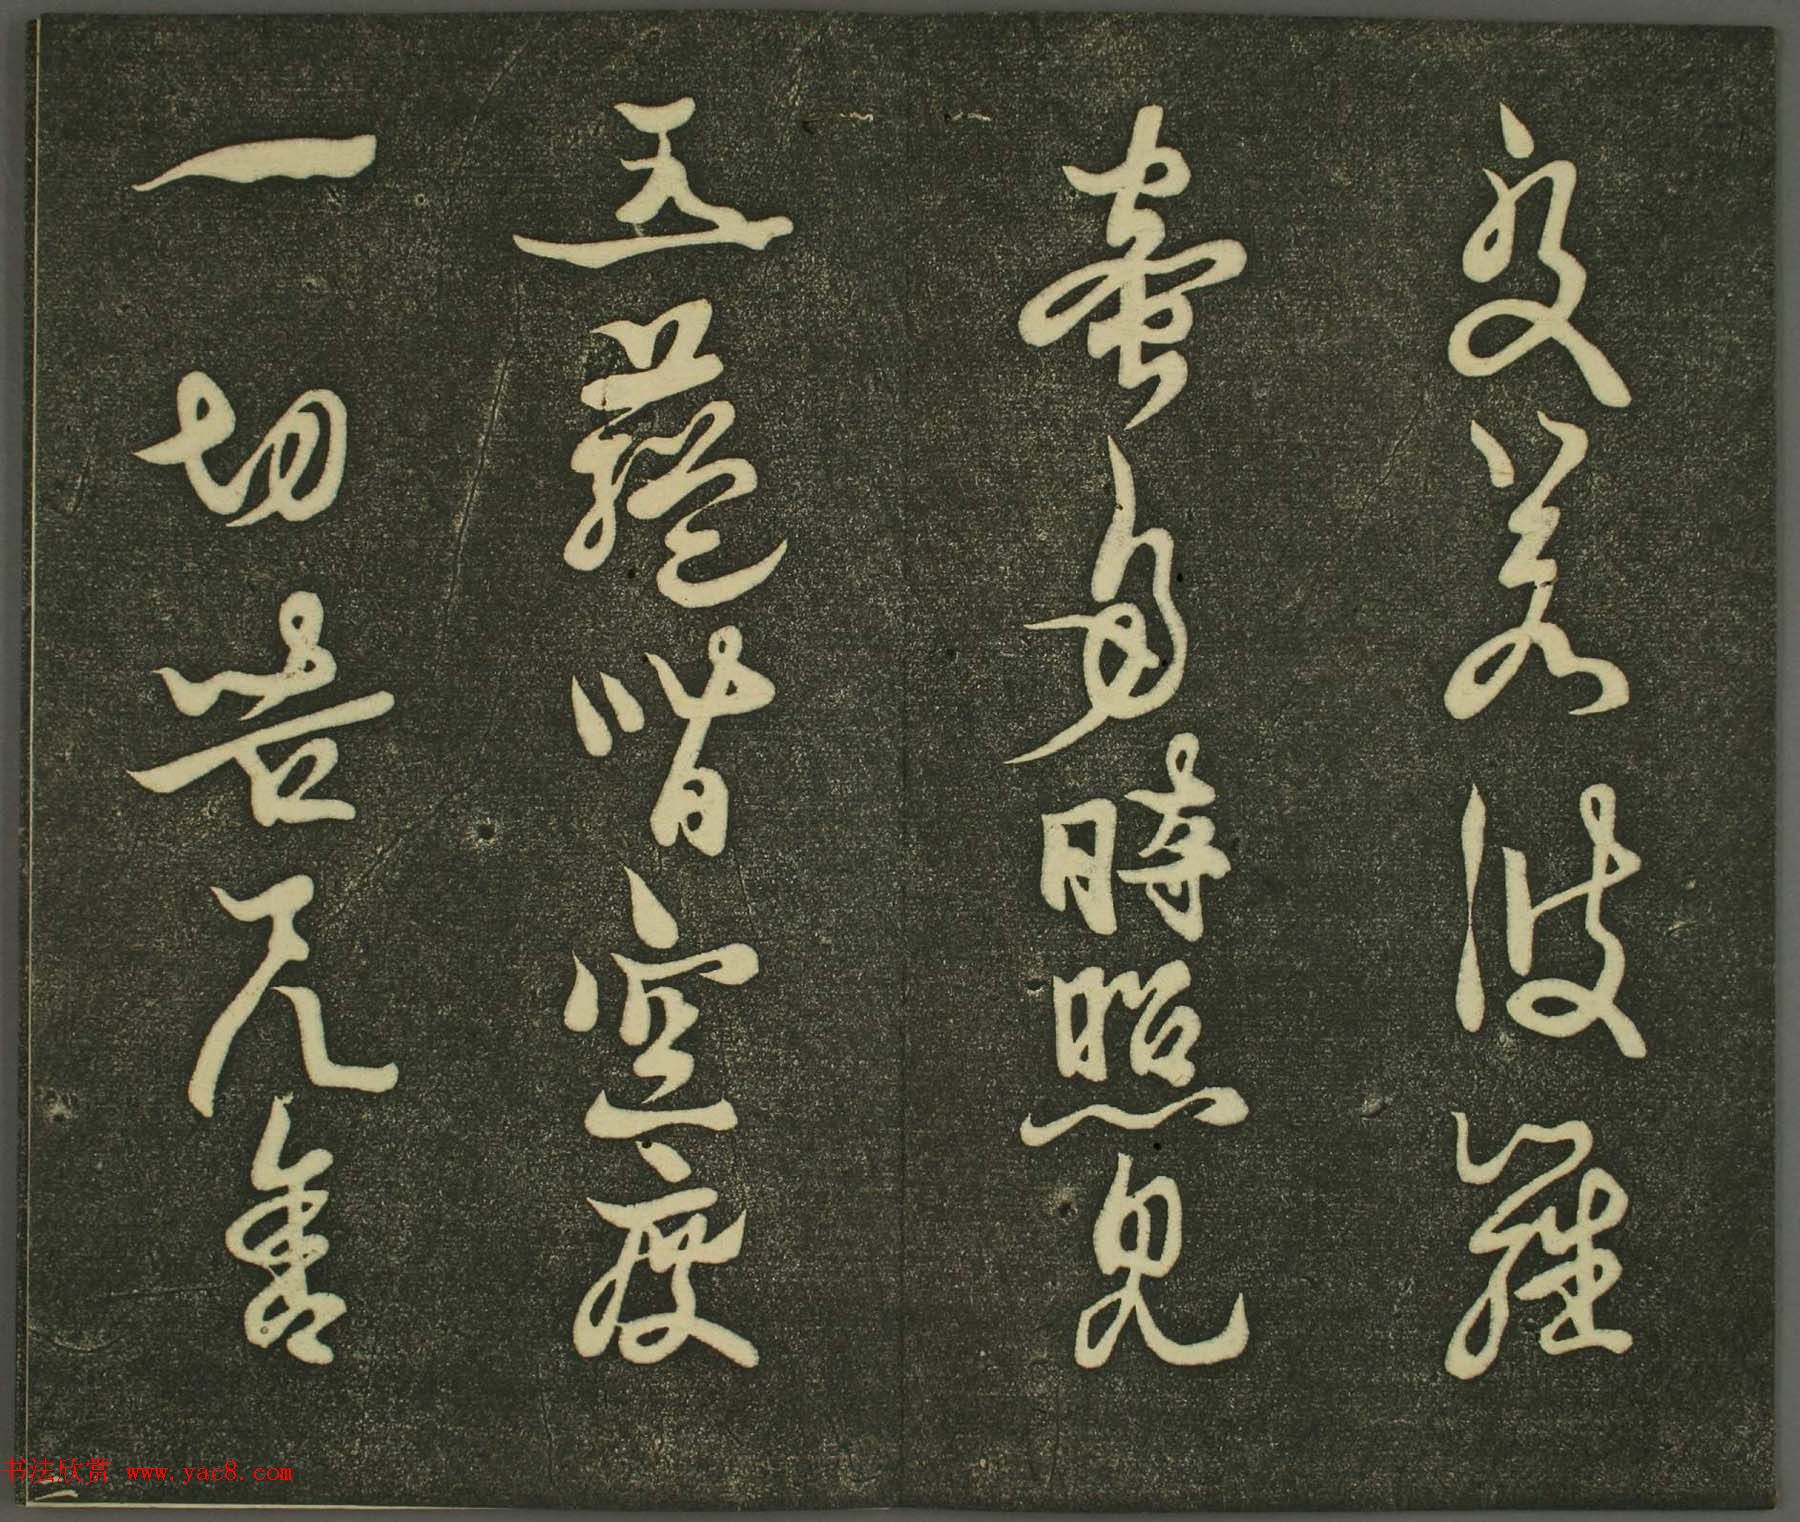 般若波羅
蜜多時照見
五蘊皆空度
一切苦厄舍
书法欣赏 www.yac8.com